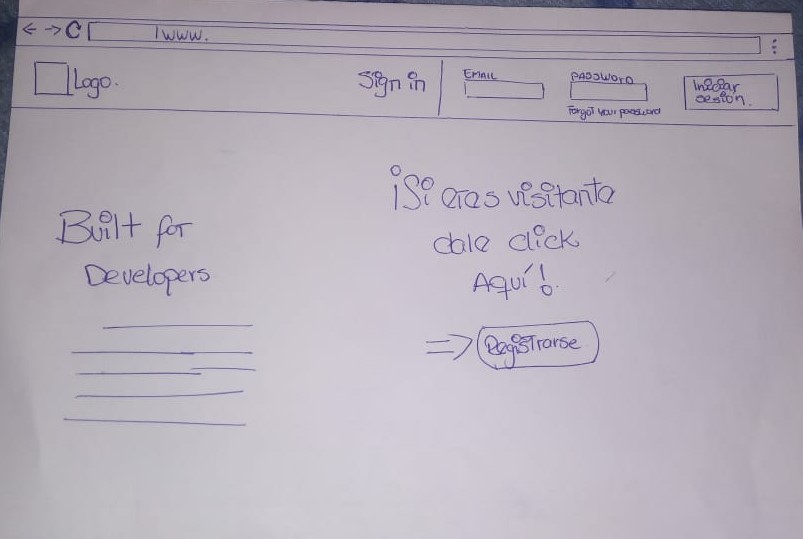 www.
Logo.
Sign in
EMAIL
PASSWORD
Forgot your password
Iniciar
sesion.
Built for
Developers
¡Si eres visitante
dale click
Aquí!
Registrarse